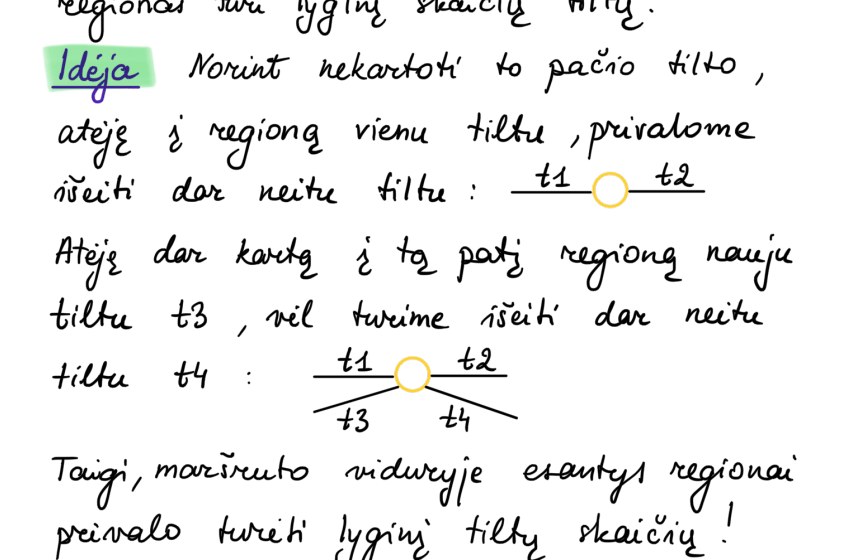 regionas turi lyginį skaičių tiltų.
Idėja Norint nekartoti to pačio tilto,
atėję į regioną vienu tiltu, privalome
išeiti dar neitu tiltu: t1 t2
Atėję dar kartą į tą patį regioną nauju
tiltu t3, vėl turime išeiti dar neitu
tiltu t4: t1 t2
t3 t4
Taigi, maršruto viduryje esantys regionai
privalo turėti lyginį tiltų skaičių!